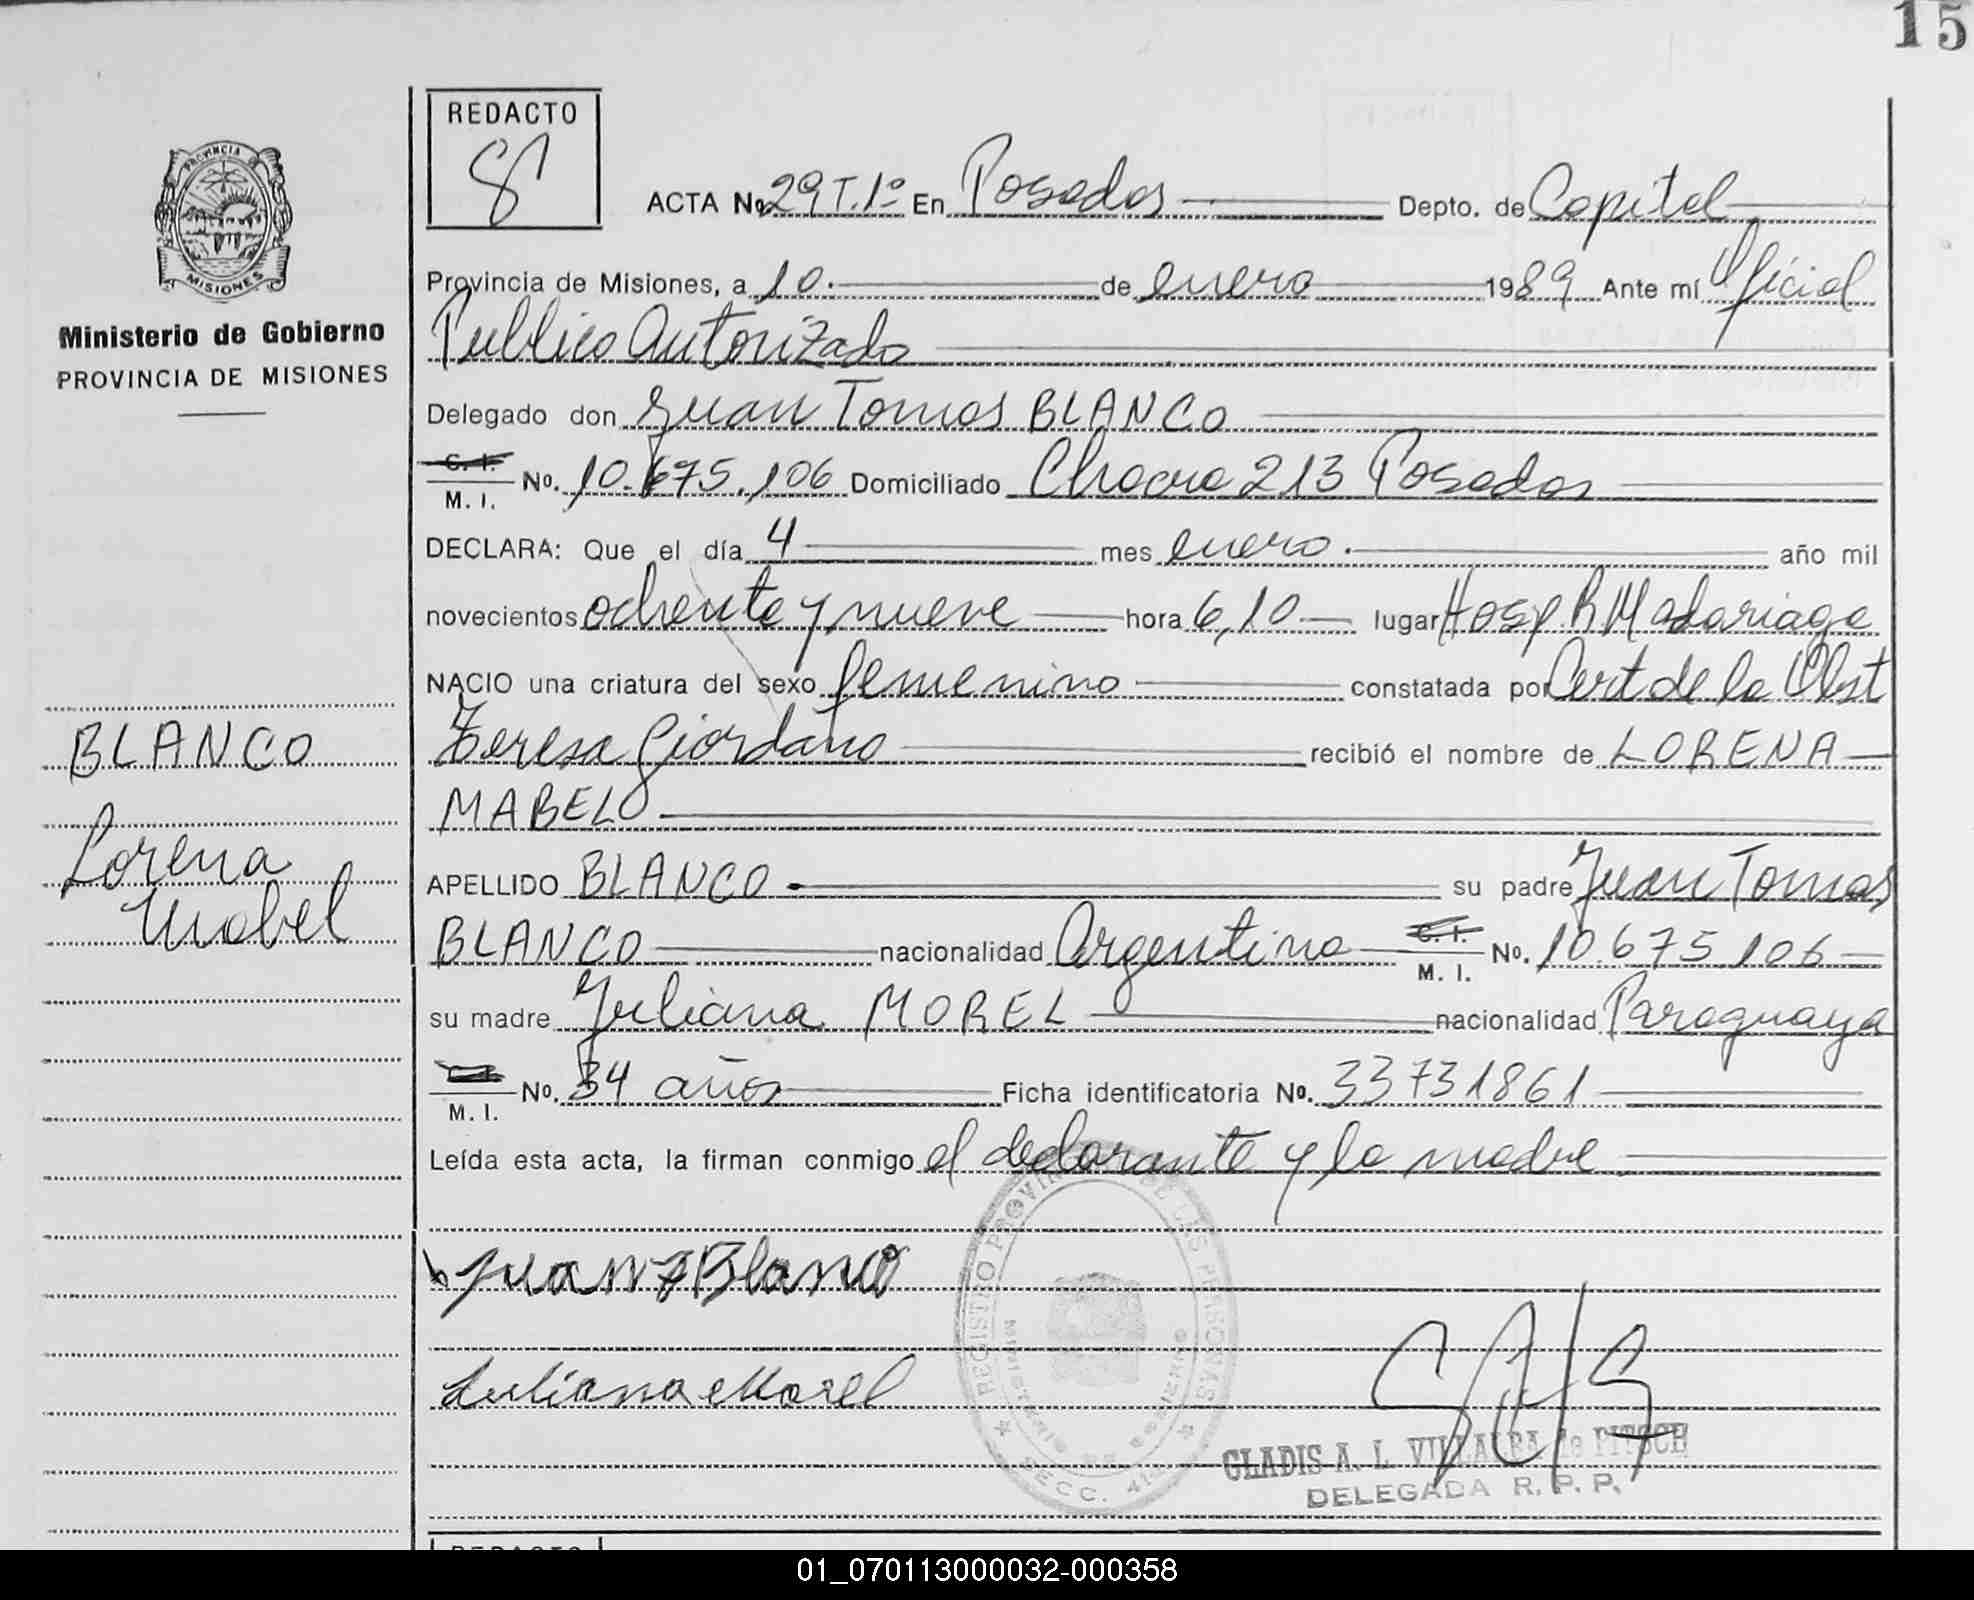 15
REDACTO
PROVINCIA DE
MISIONES
Ministerio de Gobierno
PROVINCIA DE MISIONES
ACTA No. 29 T. 1º En Posadas Depto. de Capital
Provincia de Misiones, a 10. de enero 1989 Ante mí Oficial
Publico Autorizado
Delegado don Juan Tomas BLANCO
C. I.
M. I. No. 10.675.106 Domiciliado Chacra 213 Posadas
DECLARA: Que el día 4 mes enero. año mil
novecientos ochenta y nueve hora 6,10 lugar Hosp. R Madariaga
NACIO una criatura del sexo femenino constatada por Cert de la Obst
Teresa Giordano recibió el nombre de LORENA
MABEL
APELLIDO BLANCO su padre Juan Tomas
BLANCO nacionalidad Argentina C. I. M. I. No. 10.675.106
su madre Juliana MOREL nacionalidad Paraguaya
M. I. No. 34 años Ficha identificatoria No. 33731861
Leída esta acta, la firman conmigo el declarante y la madre
BLANCO
Lorena
Mabel
Juan T Blanco
Juliana Morel
REGISTRO PROVINCIAL DE LAS PERSONAS
MINISTERIO DE GOBIERNO
SECC.
GLADIS A. L. VILLALBA de PITSCH
DELEGADA R. P. P.
REDACTO
01_070113000032-000358